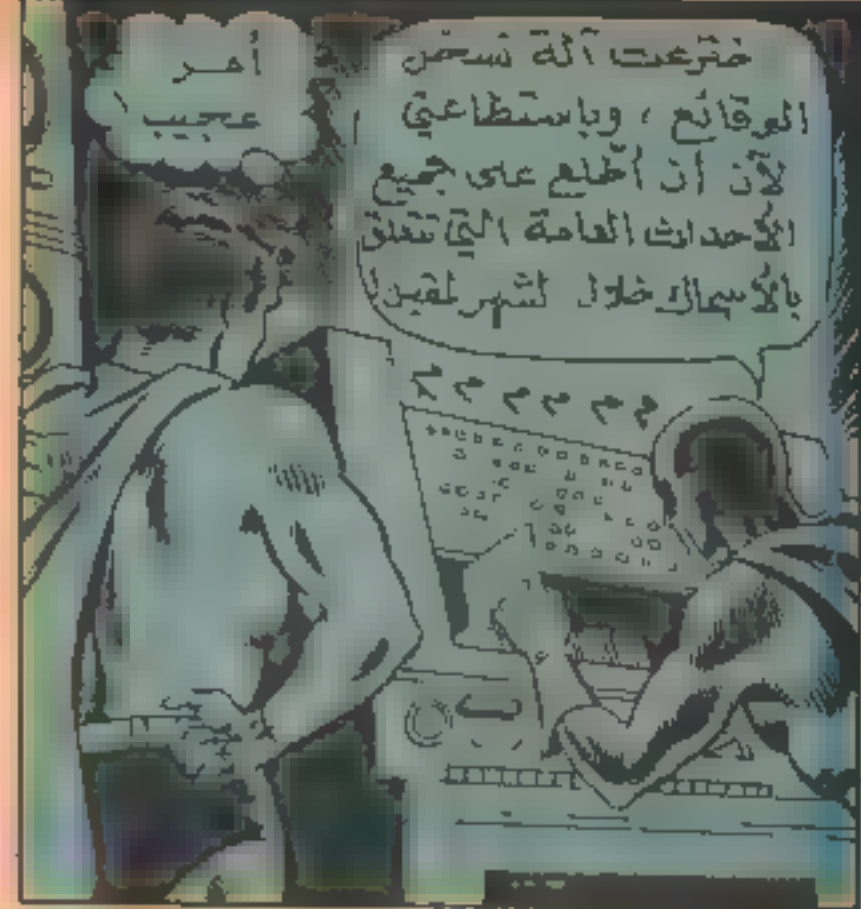 خترعت آلة تسخن
الوقائع ، وباستطاعتي
لآن أن أطلع على جميع
الأحداث العامة التي تتعلق
بالأسماك خلال لشهر
أمر
عجيب !